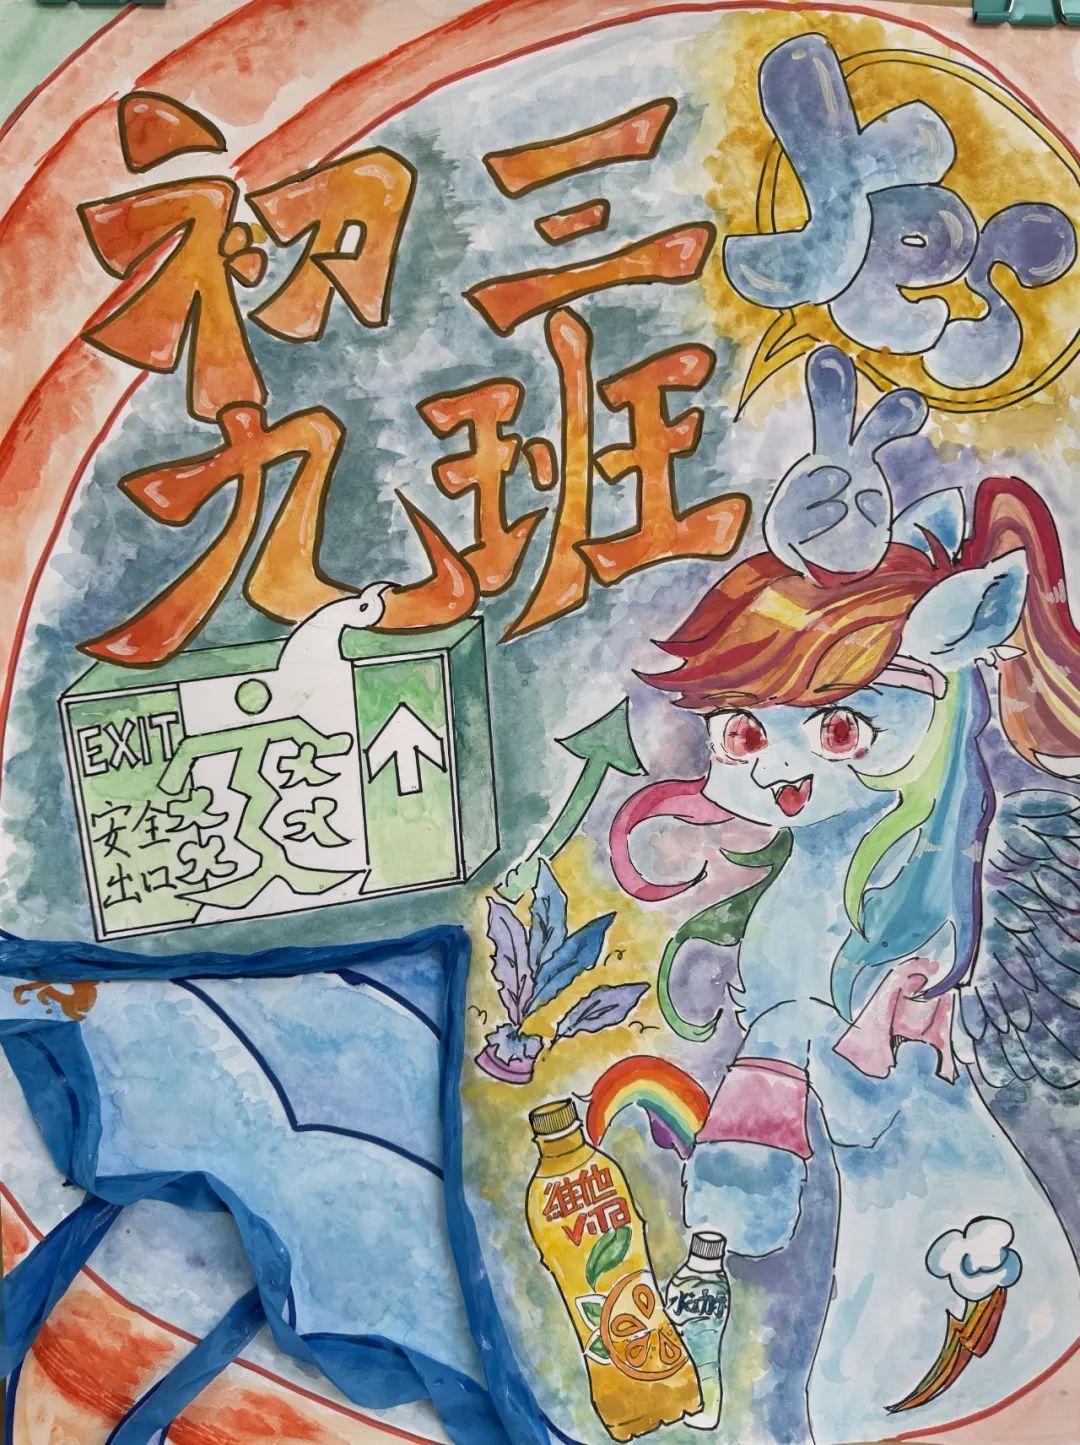 初三
九班
yes
EXIT
安全
出口
爽
维他
ViTa